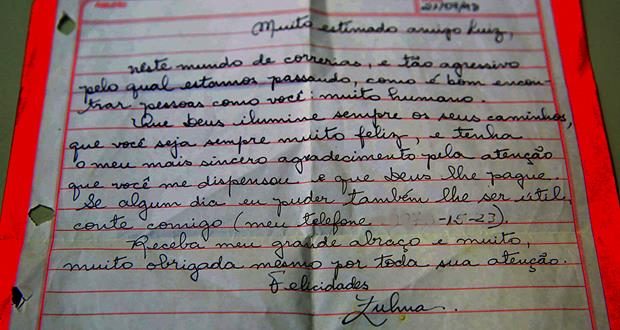 21/09/98
Muito estimado amigo Luiz,
neste mundo de correrias, e tão agressivo
pelo qual estamos passando, como é bom encon-
trar pessoas como você: muito humano.
Que Deus ilumine sempre os seus caminhos,
que você seja sempre muito feliz, e tenha
o meu mais sincero agradecimento pela atenção
que você me dispensou e que Deus lhe pague.
Se algum dia eu puder também lhe ser útil,
conte comigo (meu telefone -15-23).
Receba meu grande abraço e muito,
muito obrigada mesmo por toda sua atenção.
Felicidades
Zulma.